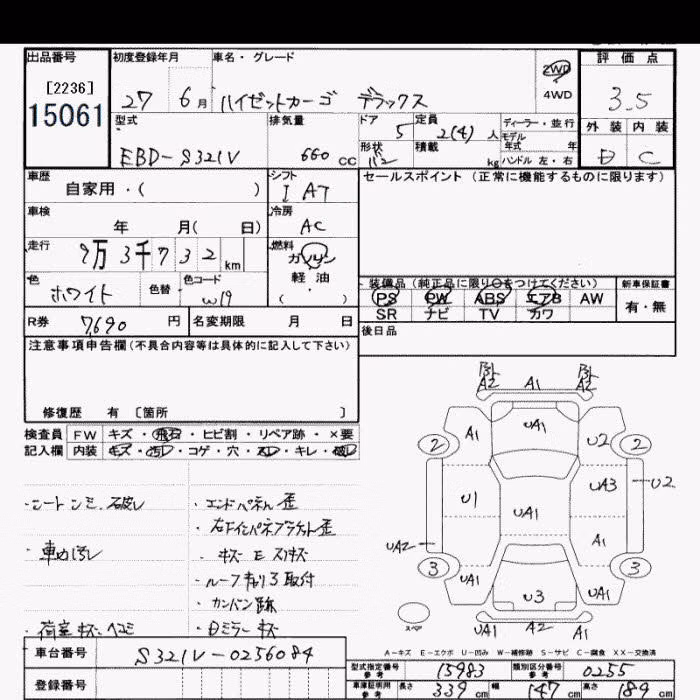 出品番号 初度登録年月 車名・グレード 評価点
[2236] 2WD
15061 27 6月 ハイゼットカーゴ デラックス 4WD 3.5
型式 排気量 ドア 定員 ディーラー・並行 外装 内装
5 2(4)人 モデル年式 年
EBD-S321V 660cc 形状 積載 kg ハンドル 左・右 D C
車歴 シフト セールスポイント (正常に機能するものに限ります)
自家用・( ) I AT
車検 冷房
年 月( 日) AC
走行 燃料
9万3千732km ガソリン
軽油
色 色替 色コード ( ) 装備品 (純正品に限り○をつけてください) 新車保証書
ホワイト W19 PS PW ABS エアB AW 有・無
R券 7,690円 名変期限 月 日 SR ナビ TV カワ
注意事項申告欄(不具合内容等は具体的に記入して下さい) 後日品
修復歴 有 〔箇所 〕
検査員 FW キズ・飛石・ヒビ割・リペア跡・×要
記入欄 内装 キズ・汚レ・コゲ・穴・スレ・キレ・破レ
・シートシミ、破レ ・エンドパネル歪
・右下インパネブラケット歪
・車内汚レ ・キズ E スリキズ
・ルーフキャリア取付
・カンバン跡
・荷室キズ、ヘコミ ・Dミラーキズ
A2 A1 A2
A1 UA1 U2
2 2
U1 UA1 UA3 U2
UA2 A1
3 3
UA1 U3 UA1
スペア UA1 A2 A1
A-キズ E-エクボ U-凹み W-補修跡 S-サビ C-腐食 XX-交換済
車台番号 S321V-0256084
型式指定番号 参考 15983 類別区分番号 参考 0255
登録番号 車庫証明用 参考 長さ 339cm 幅 147cm 高さ 189cm